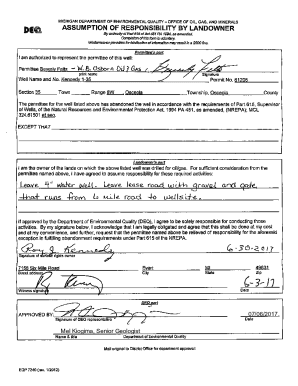 MICHIGAN DEPARTMENT OF ENVIRONMENTAL QUALITY - OFFICE OF OIL, GAS, AND MINERALS
DEQ
ASSUMPTION OF RESPONSIBILITY BY LANDOWNER
Permittee's part
I am authorized to represent the permittee of this well:
Permittee Beverly Felts - W.B. Osborn Oil & Gas
print name Signature
Well Name and No. Kennedy 1-35 Permit No. 61206
Section 35 Town Range 8W, Osceola Township, Osceola County
The permittee for the well listed above has abandoned the well in accordance with the requirements of Part 615, Supervisor
of Wells, of the Natural Resources and Environmental Protection Act, 1994 PA 451, as amended, (NREPA); MCL
324.61501 et seq.
EXCEPT THAT
Landowner's part
I am the owner of the lands on which the above listed well was drilled for oil/gas. For sufficient consideration from the
permittee named above, I have agreed to assume responsibility for these required activities:
Leave 5" water well. Leave lease road with gravel and gate
that runs from 6 mile road to wellsite.
If approved by the Department of Environmental Quality (DEQ), I agree to be solely responsible for conducting those activities.
By my signature below, I acknowledge that I am legally obligated and agree that this shall be done at my cost
and at my convenience, and further, request that the permittee named above be relieved of responsibility for the allowable
exception in fulfilling abandonment requirements under Part 615 of the NREPA.
Roy J Kennedy 6-30-2017
Signature of surface rights owner Date
7159 Six Mile Road Evart MI 49631
Street address City State Zip
6-3-17
Witness signature Date
DEQ part
APPROVED BY: 07/06/2017
Signature of DEQ representative Date
Mel Kiogima, Senior Geologist
Name & title Department of Environmental Quality
Mail original to District Office for department approval